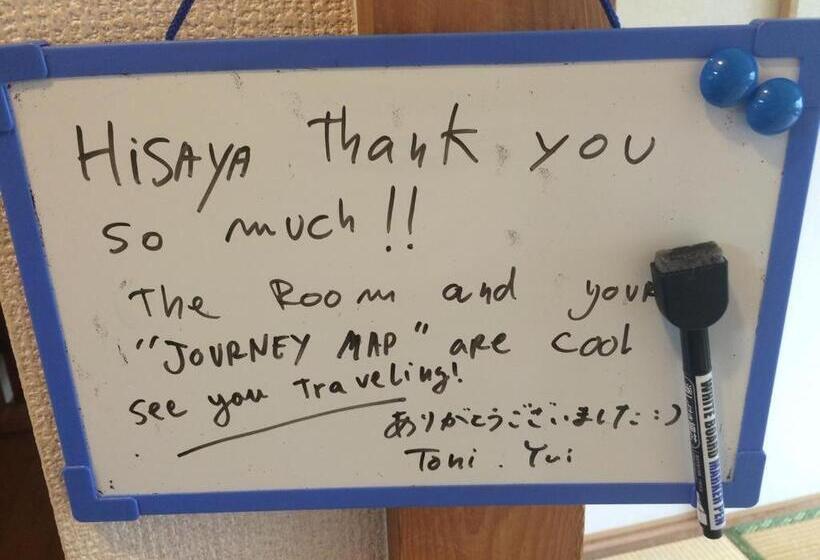 HiSAYA Thank you
so much!!
The Room and your
"JOURNEY MAP" are cool
see you Traveling!
ありがとうございました :)
Toni . Yui
WHITE BOARD MARKER PEN